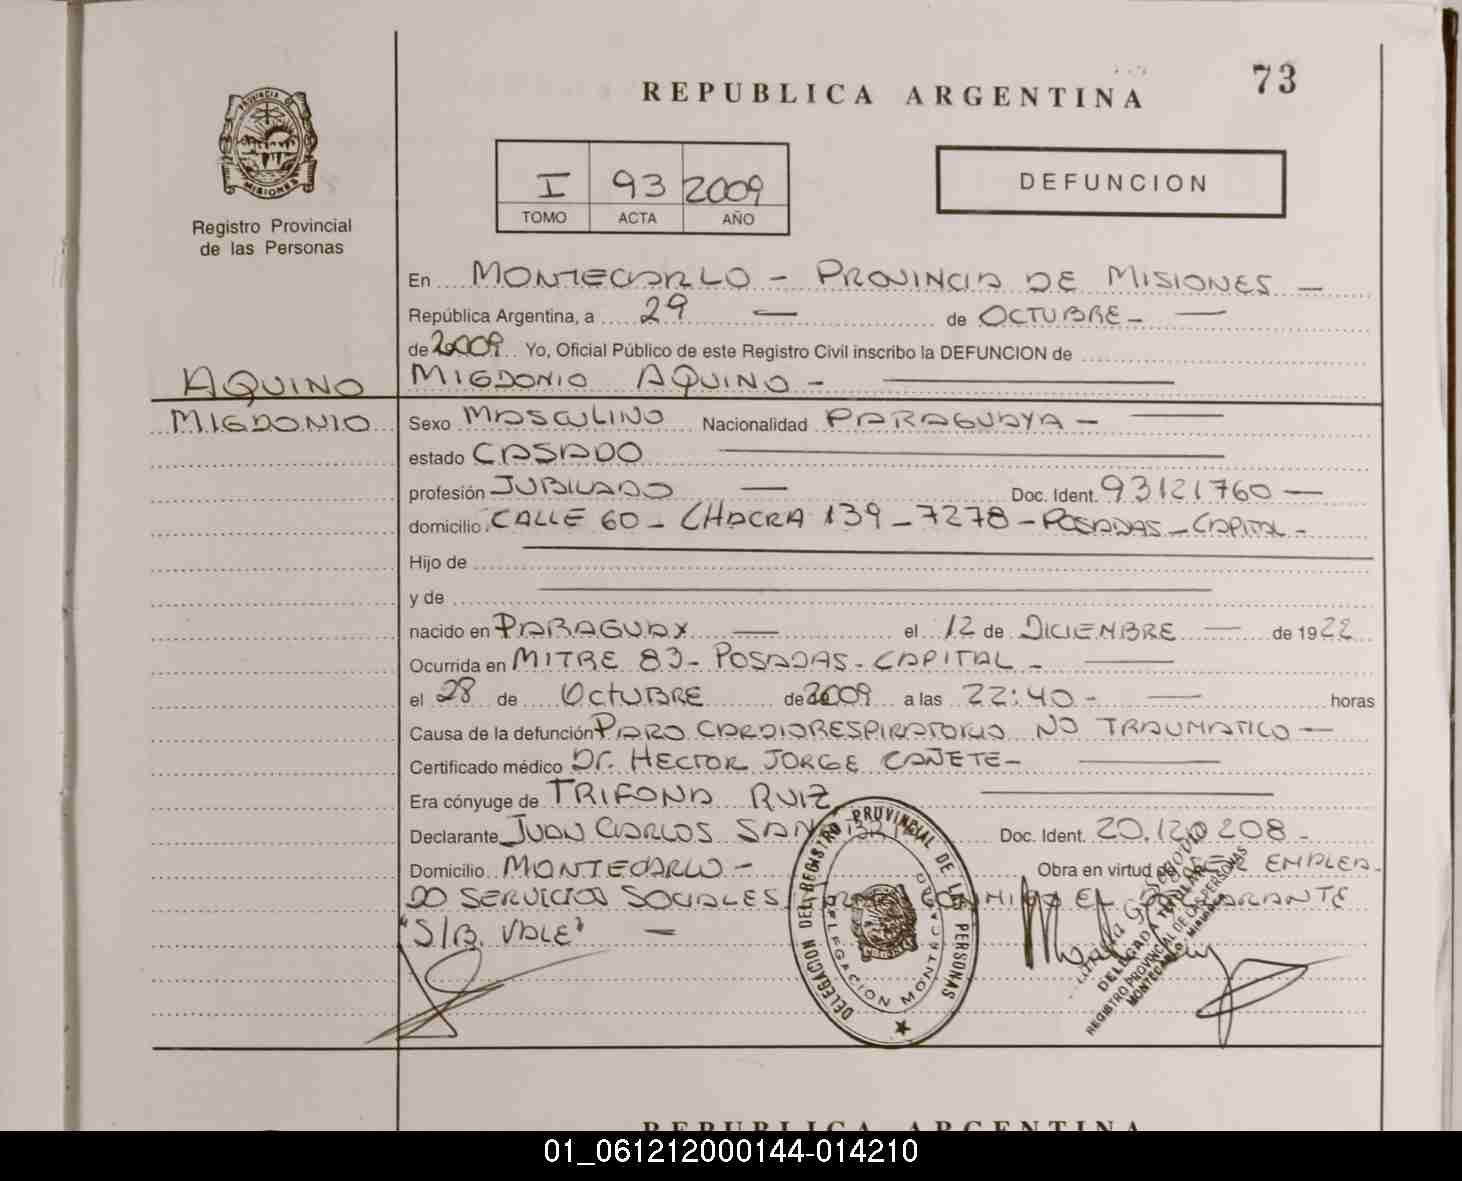 73
REPUBLICA ARGENTINA
PROVINCIA DE
MISIONES
Registro Provincial
de las Personas
I 93 2009
TOMO ACTA AÑO
DEFUNCION
En MONTECARLO - PROVINCIA DE MISIONES -
República Argentina, a 29 — de OCTUBRE - —
de 2009 Yo, Oficial Público de este Registro Civil inscribo la DEFUNCION de
AQUINO MIGDONIO AQUINO -
MIGDONIO Sexo MASCULINO Nacionalidad PARAGUAYA -
estado CASADO
profesión JUBILADO — Doc. Ident. 93121760 —
domicilio CALLE 60 - CHACRA 139 - 7278 - POSADAS - CAPITAL -
Hijo de
y de
nacido en PARAGUAY — el 12 de DICIEMBRE — de 1922
Ocurrida en MITRE 83 - POSADAS - CAPITAL -
el 28 de OCTUBRE de 2009 a las 22:40 - — horas
Causa de la defunción PARO CARDIORESPIRATORIO NO TRAUMATICO —
Certificado médico Dr. HECTOR JORGE CAÑETE -
Era cónyuge de TRIFONA RUIZ
Declarante JUAN CARLOS Doc. Ident. 20.120208 -
Domicilio MONTECARLO - Obra en virtud de SER EMPLEA-
DO SERVICIOS SOCIALES CONMIGO EL DECLARANTE
"S/B. VALE" —
DELEGACION DEL REGISTRO PROVINCIAL DE LAS PERSONAS
DELEGACION MONTECARLO
DELEGADA TITULAR
REGISTRO PROVINCIAL DE LAS PERSONAS
MONTECARLO - MISIONES
REPUBLICA ARGENTINA
01_061212000144-014210